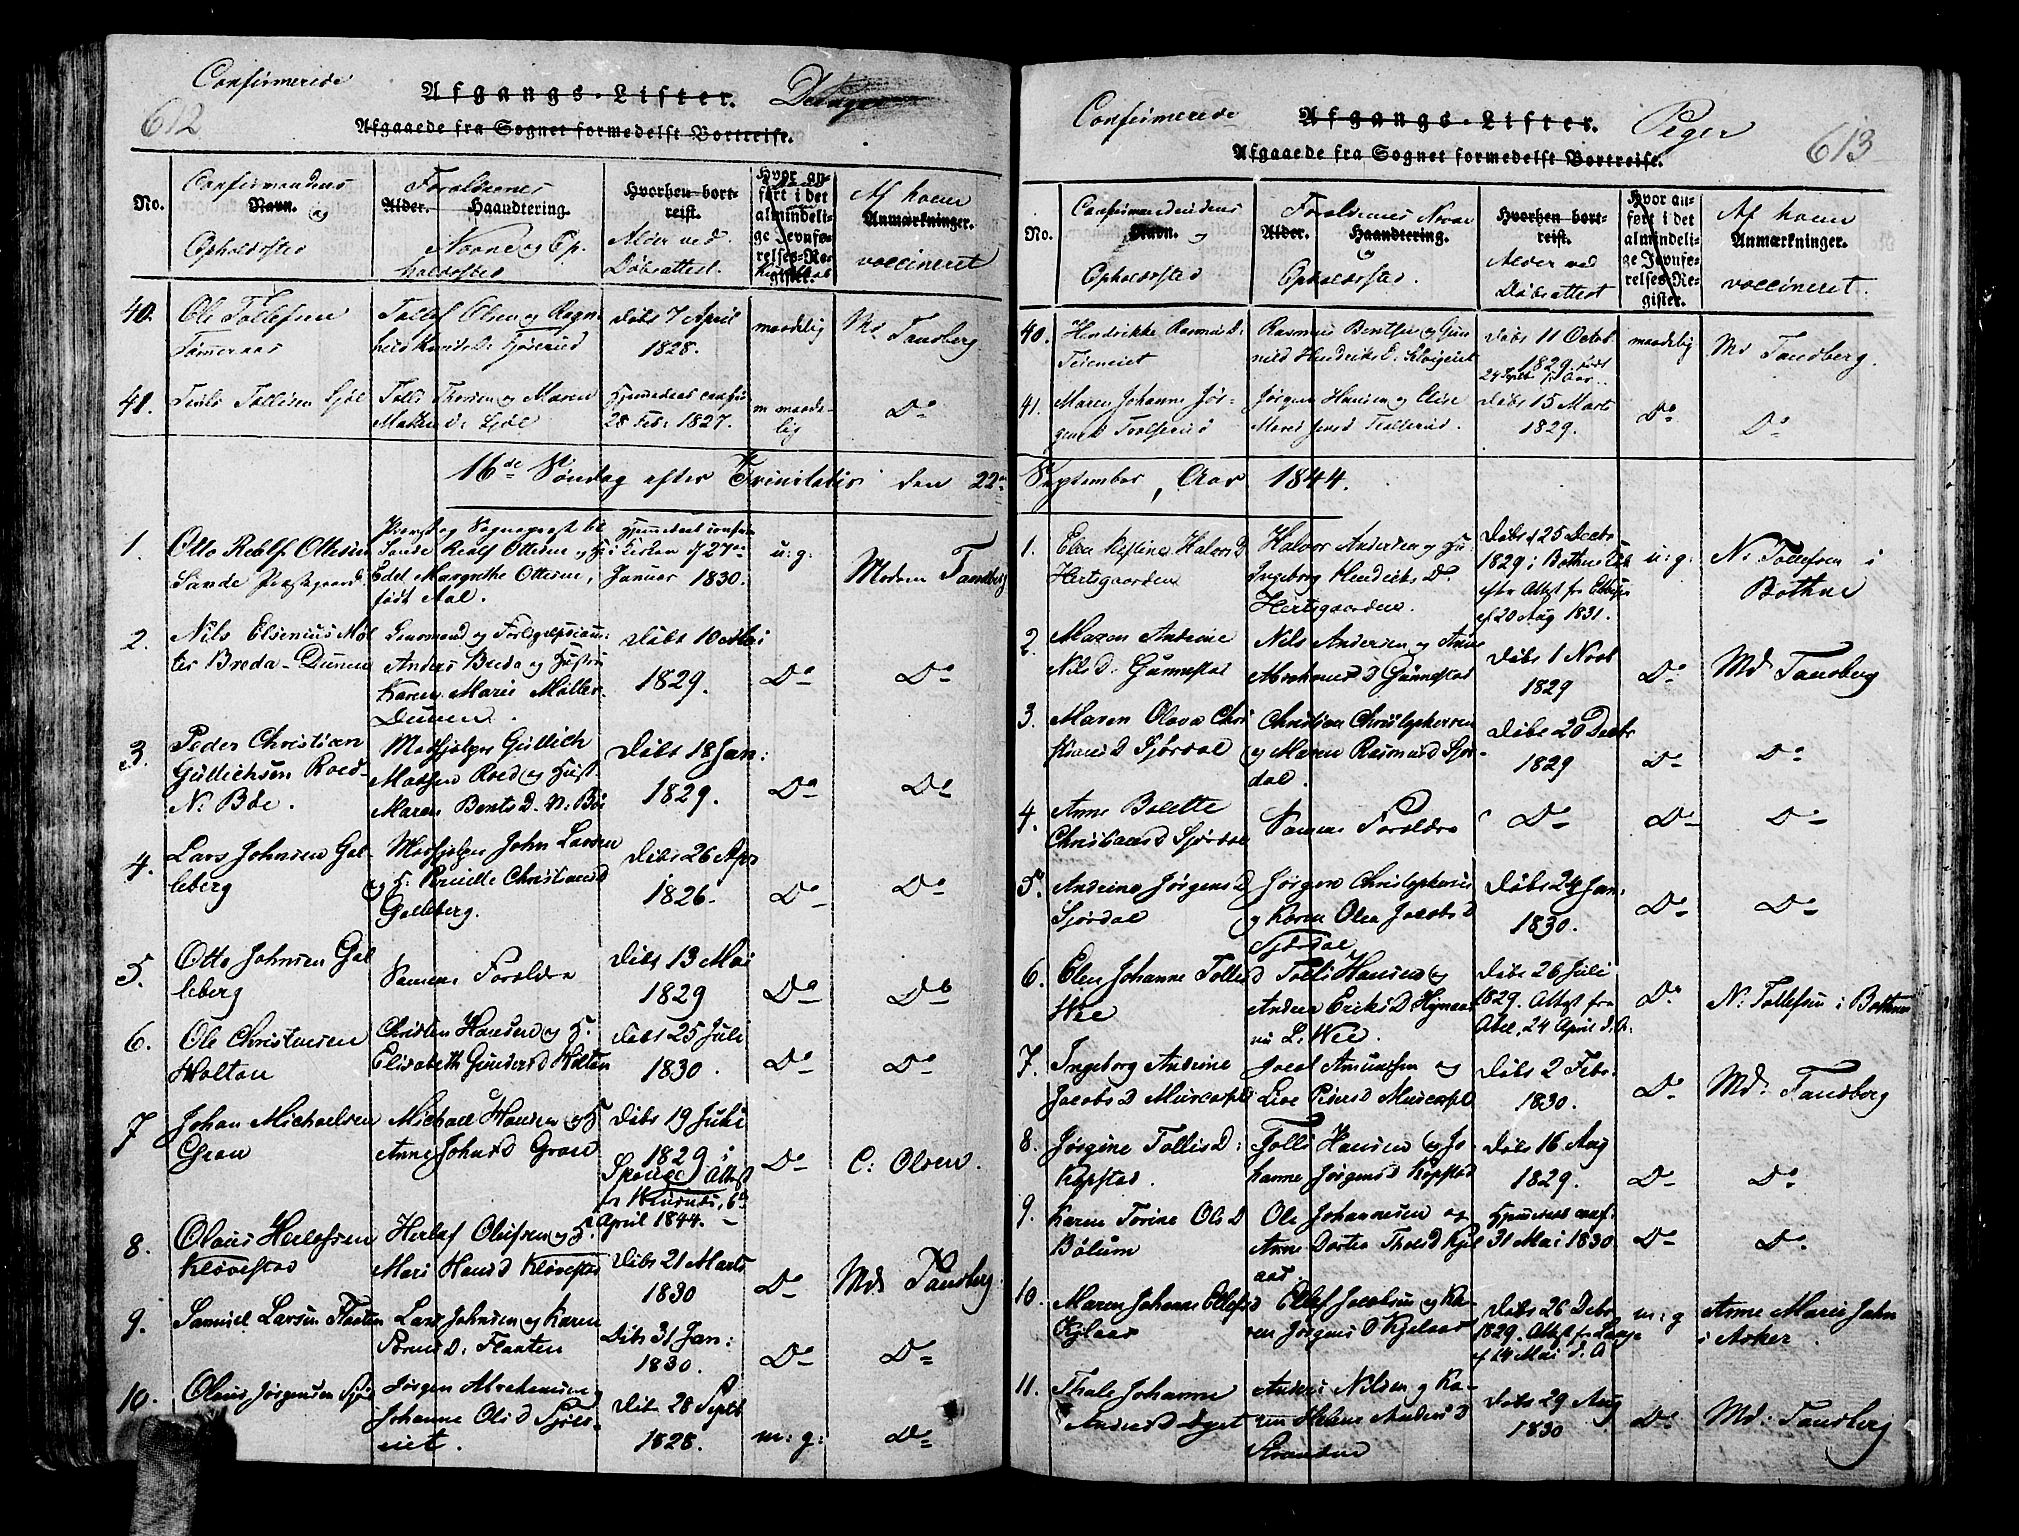 Confirmerede
Afgangs-Lister.
Drenge
612
Afgaaede fra Sognet formedelst Bortreise.
No.
Confirmandens
Navn.
og
Opholdssted
Forældrenes
Alder. Haandtering.
Navne og Op-
holdssted
Hvorhen bort-
reist.
Alder ved
Døbsattest.
Hvor an-
ført i det
almindeli-
ge Jevnfø-
relses-Re-
gister.
Kundskab
Af hvem
Anmærkninger.
vaccineret
40.
Ole Tollefsen
Tollef Olsen og Ragn-
hild Knuds D.
Døbt 7 April
1828.
maadelig
Md. Tandberg
41.
Tollisen
Tolli Thorsen og Maren
Hjemdøbt confir
28 Feb: 1827.
m maade-
lig
Do
16de Søndag efter Trinitatis den 22de
1.
Otto Realf Ottesen
Sande Præstegaard
Provst og Sognepræst til
Sande Realf Ottesen og H:
Edel Margrethe Ottesen,
født Aal.
Hjemdøbt confirm
i Kirken 27de
Januar 1830.
u: g:
Madam Tandberg
2.
Nils Elsenius Møl-
ler Breda - Dunen
Leensmand og Forligelsescom:
Anders Breda og Hustru
Karen Marie Møller
Dunen.
Døbt 10 Mai
1829.
Do
Do
3.
Peder Christian
Gullichsen Roed-
N: Bøe.
Gullich
Madsen Roed og Hust-
Maren Bents D. N: Bø
Døbt 18 Jan:
1829.
Do
Do
4.
Lars Johnsen Gal-
leberg
John Larsen
og H: Pernille Christians D
Galleberg.
Døbt 26 Apr
1826.
Do
Do
5.
Otto Johnsen Gal
leberg
Samme Forældre
Døbt 13 Mai
1829
Do
Do
6.
Ole Christensen
Holtan
Christen Hansen og H.
Elisabeth Gunders D Holtan
Døbt 25 Juli
1830.
Do
Do
7
Johan Michaelsen
Gran
Michael Hansen og H
Anne Johns D Gran
Døbt 19 Juli
1829 i
Attest
fr 6te
April 1844.
Do
C: Olsen.
8.
Olaus Herlofsen
Kløvestad
Herlof Olufsen og H.
Mari Hans D Kløvestad
Døbt 21 Marts
1830
Do
Md. Tandberg
9.
Samuel Larsen Flaaten
Lars Johnsen og Karen
D: Flaaten
Døbt 31 Jan:
1830.
Do
Do
10.
Olaus Jørgensen
Jørgen Abrahamsen og
Johanne Ols D
eiet.
Døbt 28 Septb
1828.
m: g:
Do
Confirmerede
Afgangs-Lister.
Piger
613
Afgaaede fra Sognet formedelst Bortreise.
No.
Navn.
og
Opholdssted
Forældrenes Navne
Alder. Haandtering.
og
Opholdssted
Hvorhen bort-
reist.
Alder ved
Døbsattest
Hvor an-
ført i det
almindeli-
ge Jevnfø-
relses-Re-
gister.
Af hvem
Anmærkninger.
vaccineret.
40.
Hendrikke Rasmus D:
Rasmus Bentsen og Gun-
nild Hendriks D.
Døbt 11 Octob.
1829 født
24 Septb f: Aar.
maadelig
Md Tandberg.
41.
Maren Johanne Jør-
gens D
Jørgen Hansen og Elise
Døbt 15 Marts
1829.
Do
Do
September, Aar 1844.
1.
Halvors D
Hertsgaarden
Halvor Andersen og H:
Ingeborg Hendriks D.
Hertsgaarden.
Døbt 25 Decbr
1829 i Bothne
efter Attest fr
af 20 Aug 1831.
u: g:
N: Tollefsen i
Bothne
2.
Maren Andrine
Nils D: Gunnestad
Nils Andersen og Anne
Abrahams D Gunnestad
Døbt 1 Novb
1829
Do
Md Tandberg
3.
Maren Olava Chri
stians D Sjørdal
Christian Christophersen
og Maren Rasmus D Sjør-
dal.
Døbt 20 Decbr
1829
Do
Do
4.
Anne Bolette
Christians D Sjørdal
Samme Forældre
Do
Do
Do
5.
Andrine Jørgens D
Sjørdal
Jørgen Christophersen
og Karen Olea Jacobs D
Sjørdal
Døbt 24 Jan:
1830.
Do
Do
6.
Elen Johanne Tollis D
Wee
Tolli Hansen og
Andrea Eriks D
nu L. Wee.
Døbt 26 Juli
1829. Attest fra
24 April d. A.
Do
N: Tollefsen i Bothne
7.
Ingeborg Andrine
Jacobs D
Jacob Amundsen og
Live
Døbt 2 Febr.
1830.
Do
Md. Tandberg
8.
Jørgine Tollis D:
Kopstad.
Tolli Hansen og Jo-
hanne Jørgens D Kopstad
Døbt 16 Aug
1829.
Do
Do
9.
Karen Torine Ols D
Bølum
Ole Johannesen og
Anne Dortea
aas.
Hjemdøbt conf.
31 Mai 1830
Do
Do
10.
Maren Johanne Ellefs D
Kjelaas
Ellef Jacobsen og Ka-
ren Jørgens D Kjelaas
Døbt 26 Decbr
1829. Attest fr
af 14 Mai d. A
m: g
Anne Marie Jahn
i Asker.
11.
Thale Johanne
Anders D
Anders Nilsen og Ka-
ren Helene Anders D
Stranden
Døbt 29 Aug
1830
Do
Md: Tandberg